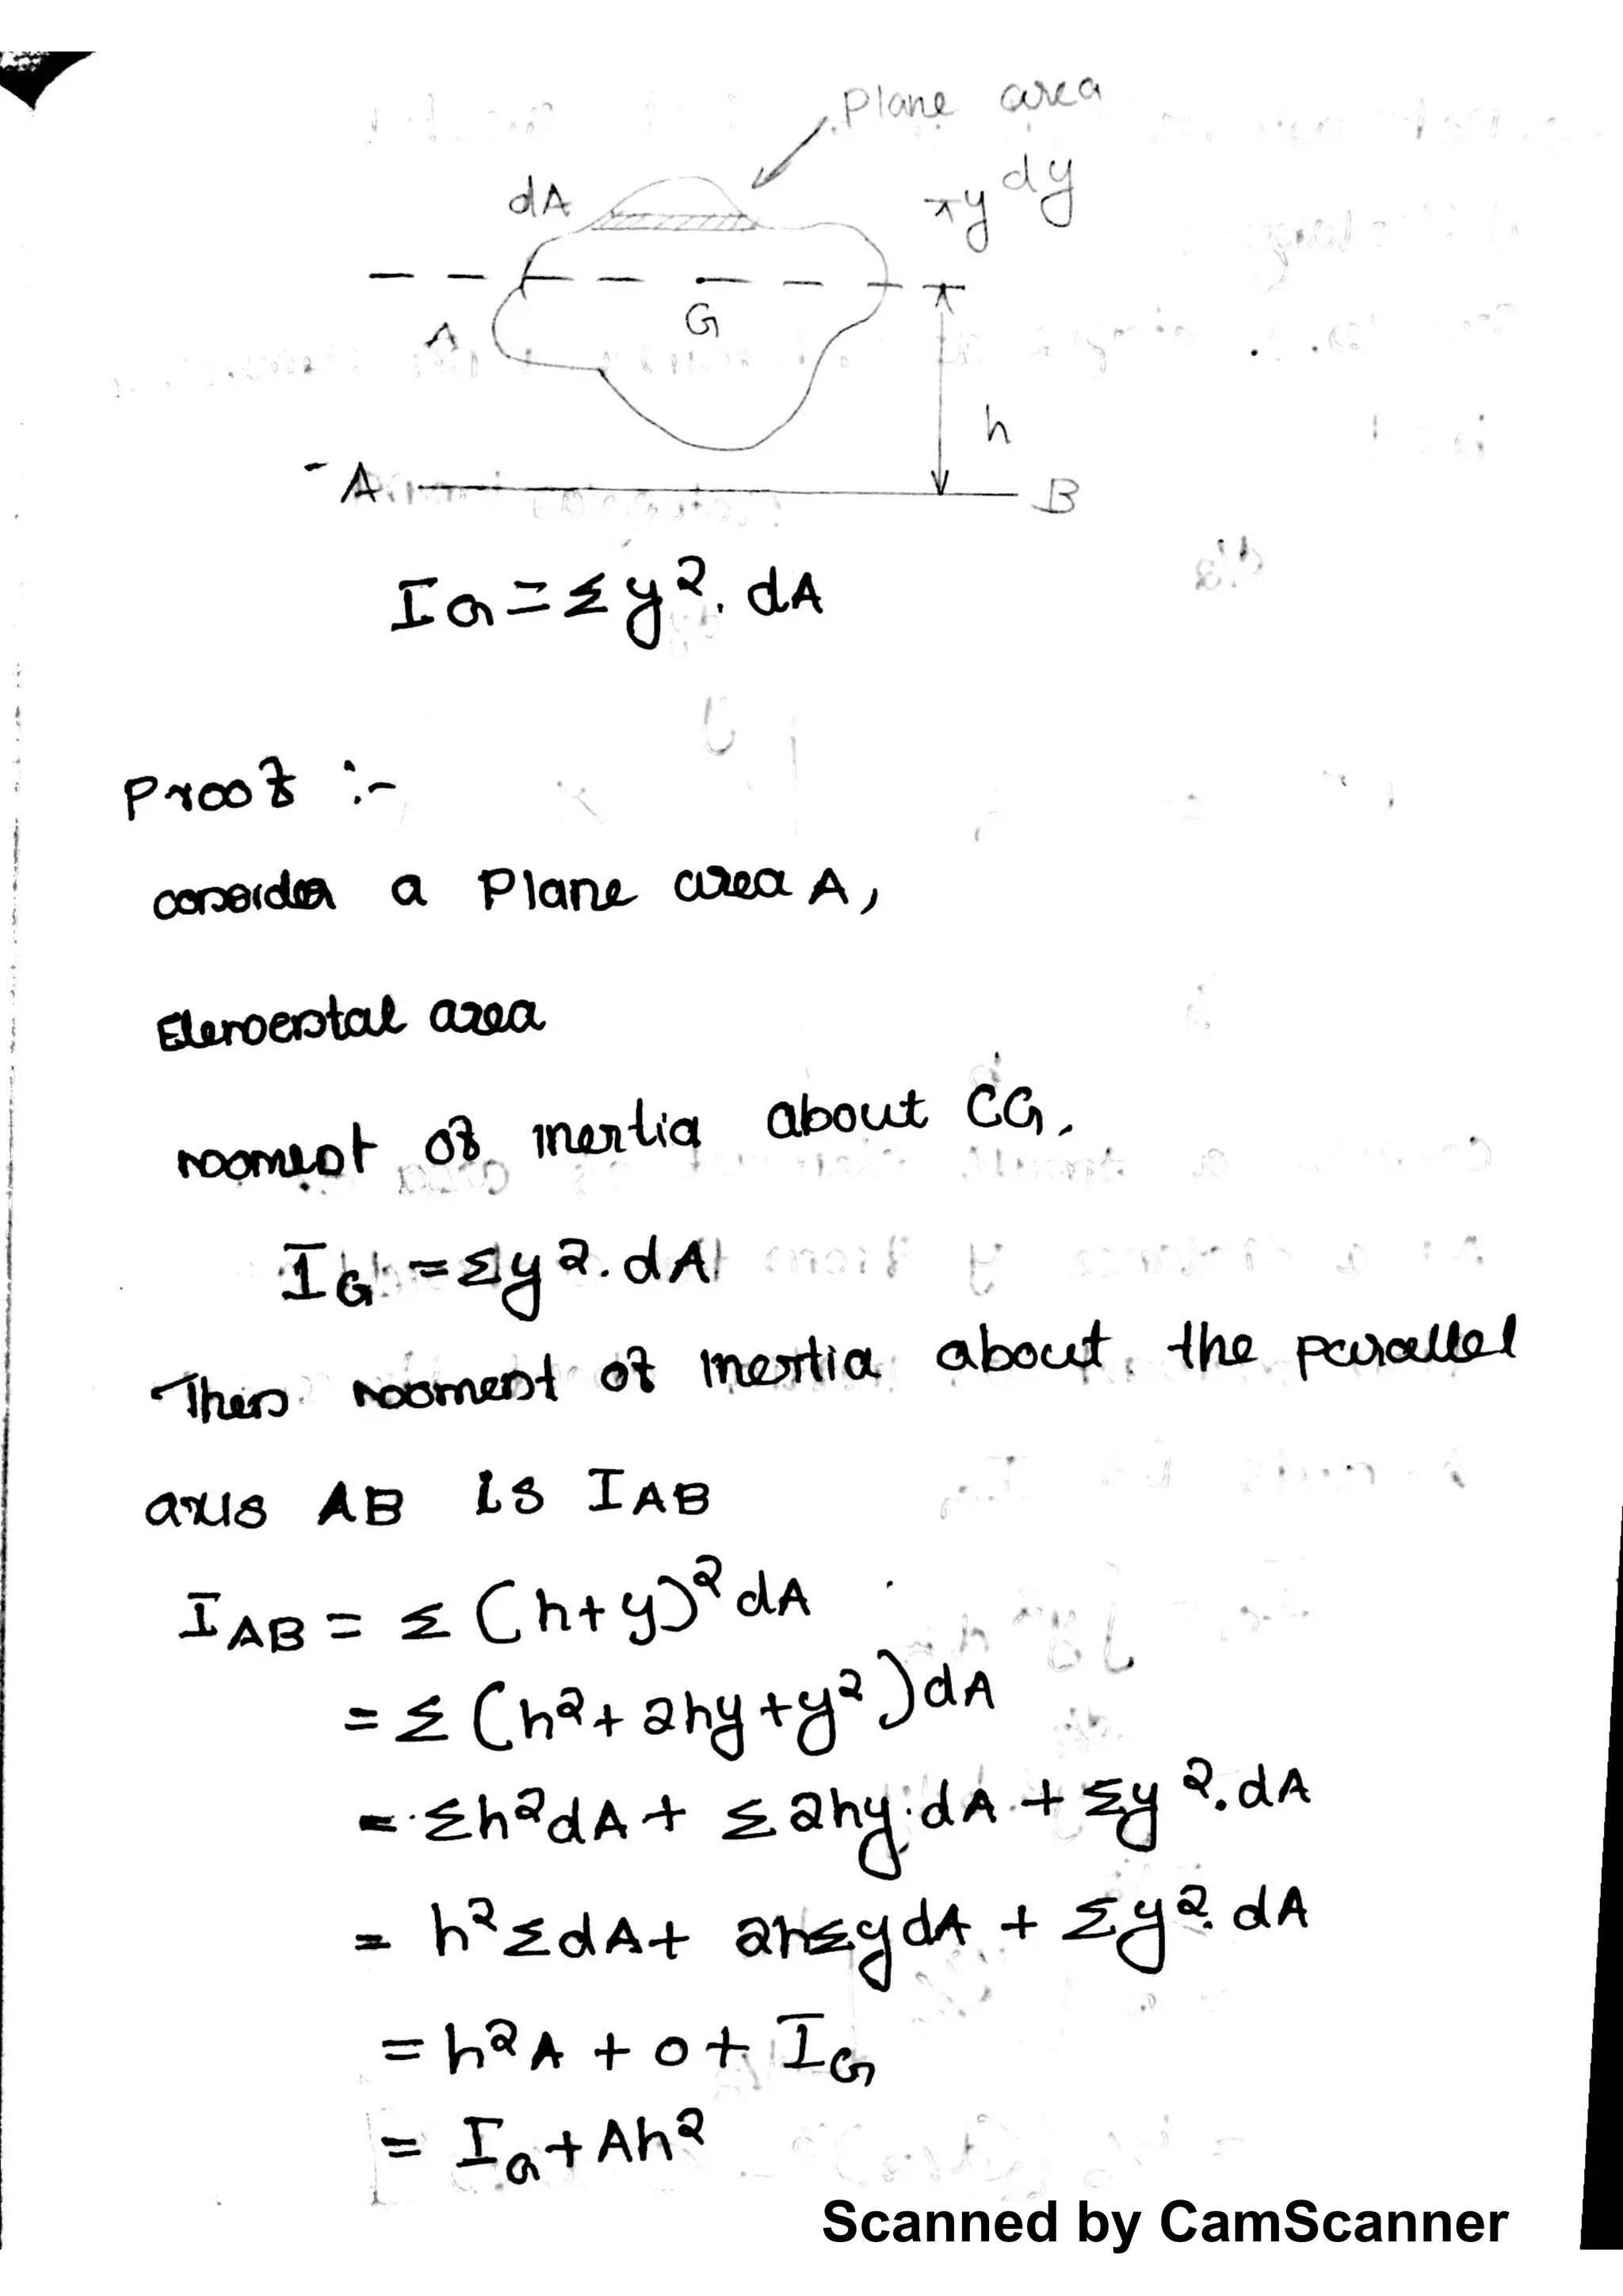 Plane area
dA
y dy
G
A
h
A
B
IG = Σy². dA
Proof :-
consider a Plane area A,
Elemental area
moment of inertia about CG.
IG = Σy². dA
Then moment of inertia about the parallel
axis AB is IAB
IAB = Σ (h+y)² dA
= Σ (h² + 2hy + y²) dA
= Σh²dA + Σ2hy.dA + Σy².dA
= h²ΣdA + 2hΣydA + Σy².dA
= h²A + 0 + IG
= IG + Ah²
Scanned by CamScanner